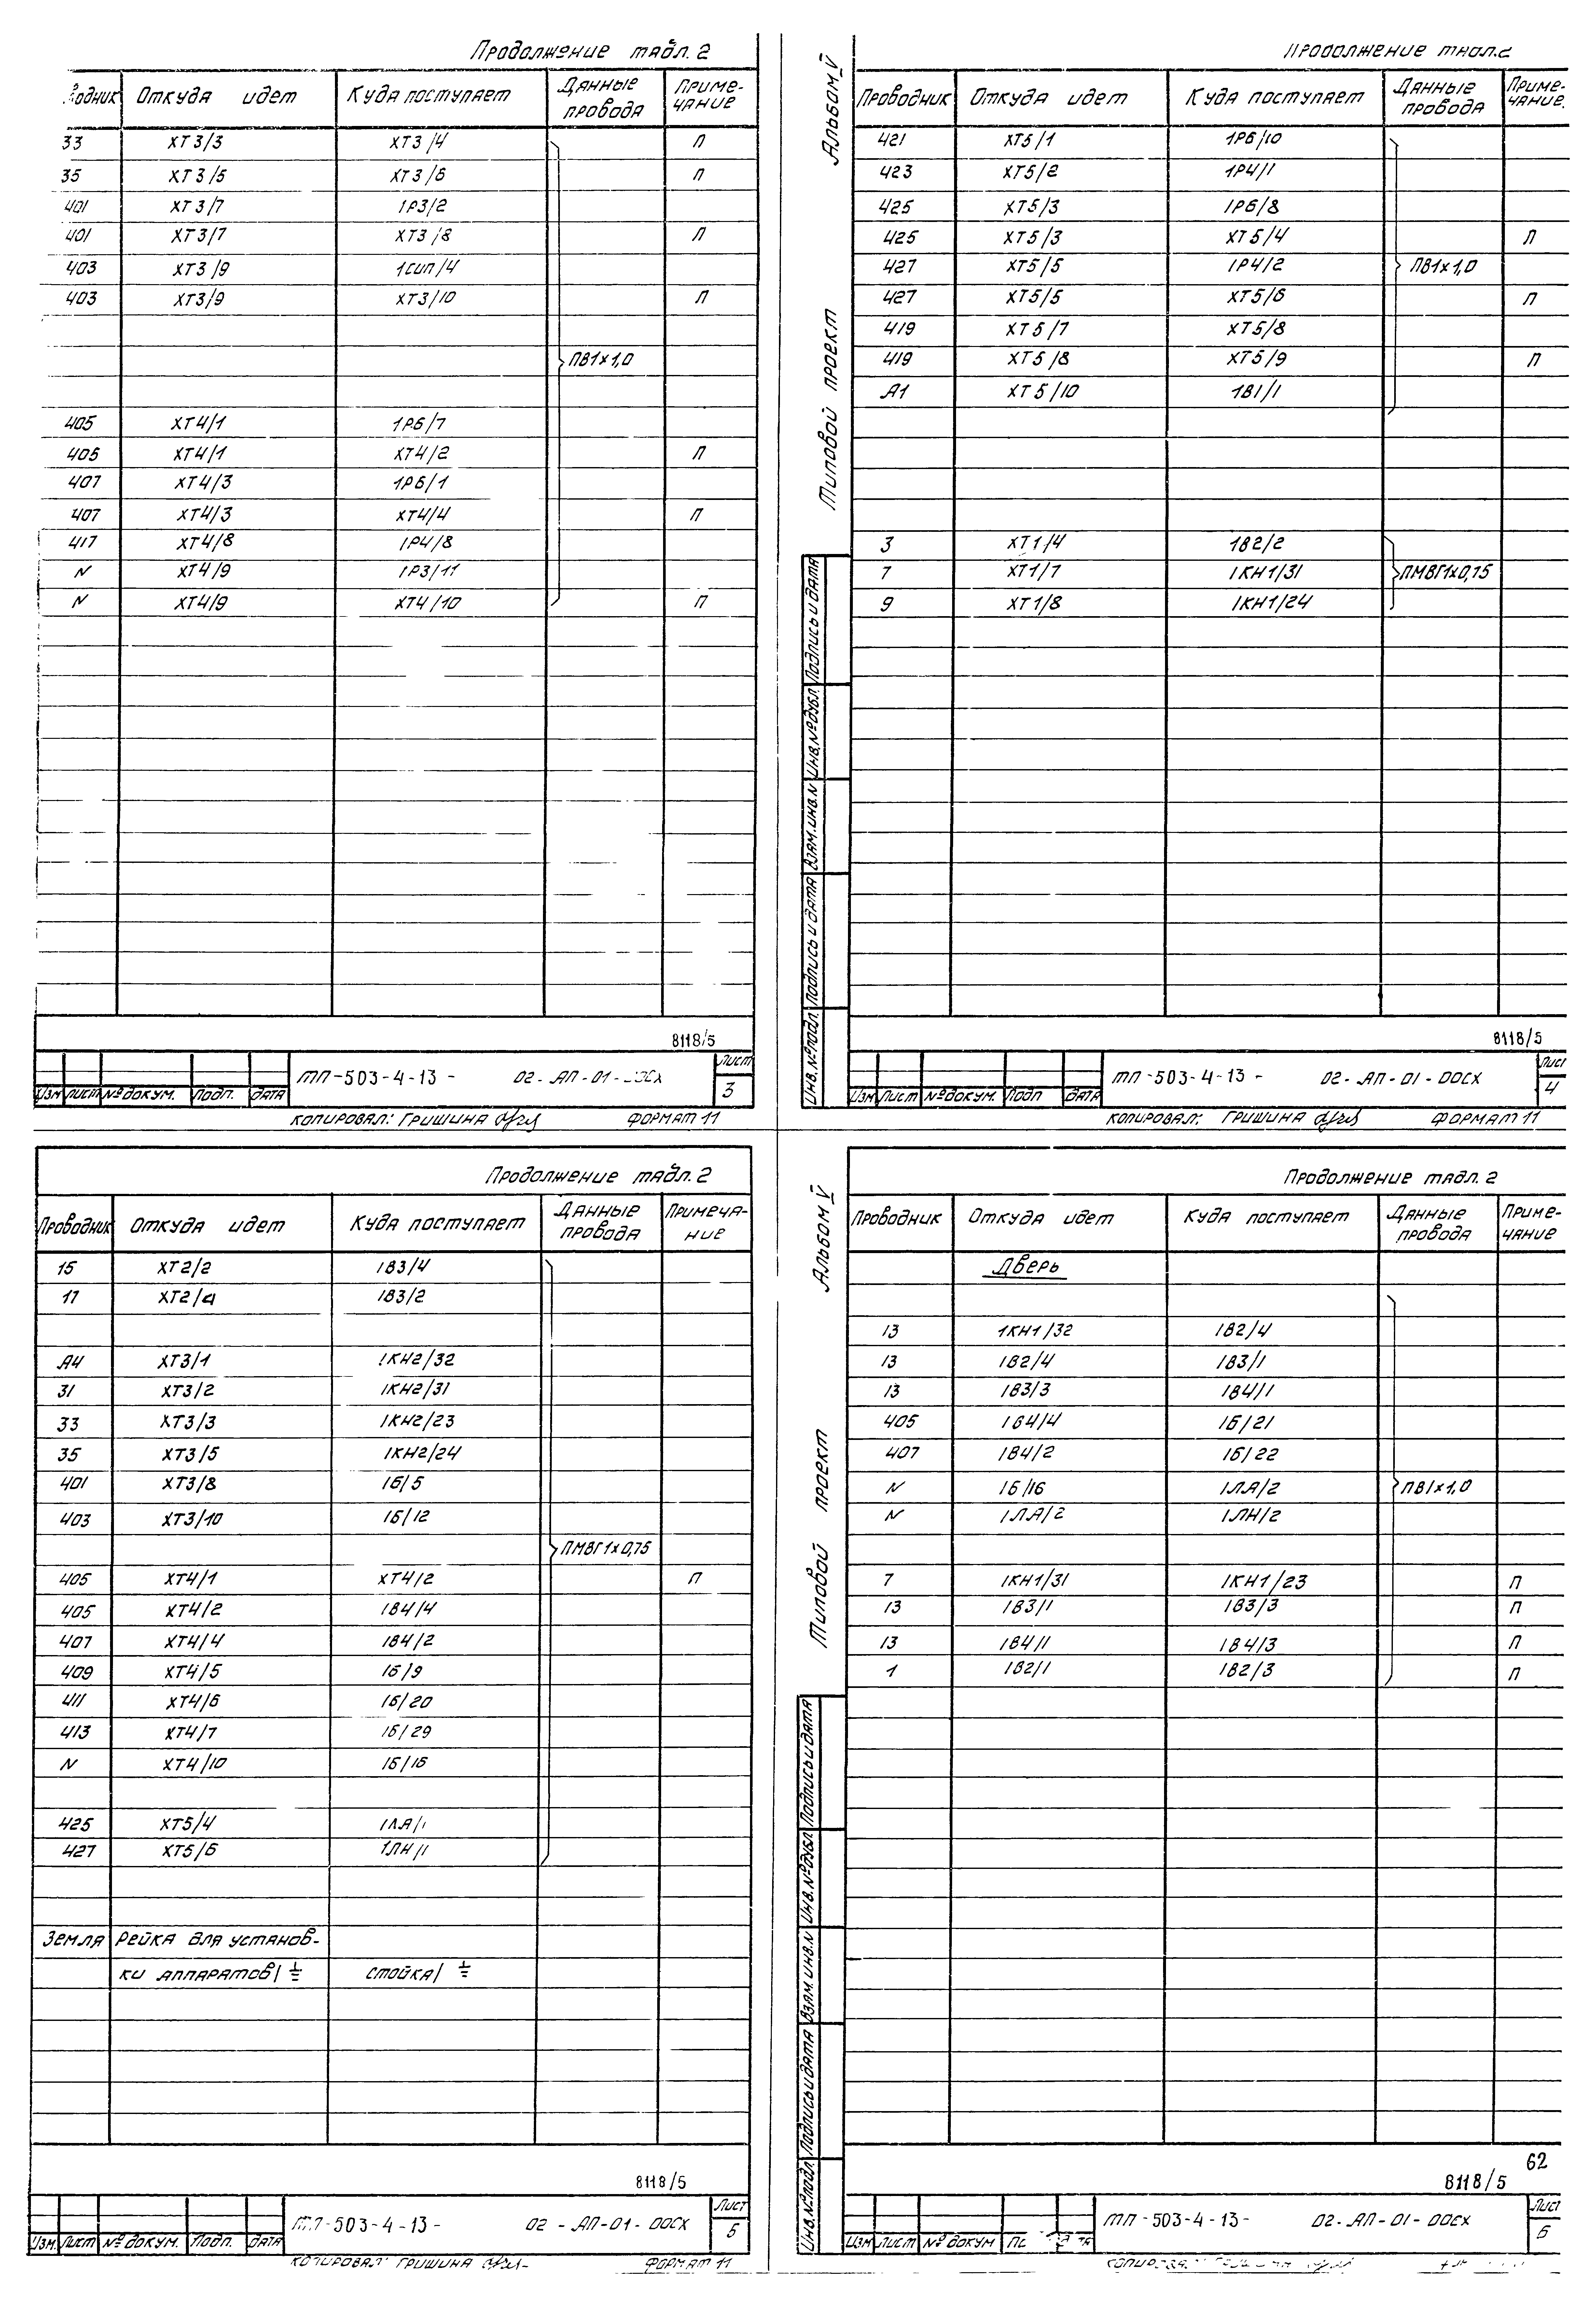 Продолжение табл. 2
Откуда идет Куда поступает Данные провода Приме-чание
33 ХТ3/3 ХТ3/4 П
35 ХТ3/5 ХТ3/6 П
401 ХТ3/7 1Р3/2
401 ХТ3/7 ХТ3/8 П
403 ХТ3/9 1сип/4
403 ХТ3/9 ХТ3/10 П
ПВ1х1,0
405 ХТ4/1 1Р6/7
405 ХТ4/1 ХТ4/2 П
407 ХТ4/3 1Р6/1
407 ХТ4/3 ХТ4/4 П
417 ХТ4/8 1Р4/8
N ХТ4/9 1Р3/11
N ХТ4/9 ХТ4/10 П
8118/5
ТП-503-4-13- 02-АП-01-
Лист
3
Изм Лист № докум. Подп. Дата
Копировал: Гришина Формат 11
Альбом V
Типовой проект
Продолжение табл. 2
Проводник Откуда идет Куда поступает Данные провода Приме-чание.
421 ХТ5/1 1Р6/10
423 ХТ5/2 1Р4/1
425 ХТ5/3 1Р6/8
425 ХТ5/3 ХТ5/4 П
427 ХТ5/5 1Р4/2 ПВ1х1,0
427 ХТ5/5 ХТ5/6 П
419 ХТ5/7 ХТ5/8
419 ХТ5/8 ХТ5/9 П
А1 ХТ5/10 1В1/1
3 ХТ1/4 1В2/2
7 ХТ1/7 1КН1/31 ПМВГ1х0,75
9 ХТ1/8 1КН1/24
Инв.№подл. Подпись и дата Взам.инв.N Инв.№дубл. Подпись и дата
8118/5
ТП-503-4-13- 02-АП-01-ООСХ
Лист
4
Изм Лист № докум. Подп Дата
Копировал: Гришина Формат 11
Продолжение табл. 2
Проводник Откуда идет Куда поступает Данные провода Примеча-ние
15 ХТ2/2 1В3/4
17 ХТ2/4 1В3/2
А4 ХТ3/1 1КН2/32
31 ХТ3/2 1КН2/31
33 ХТ3/3 1КН2/23
35 ХТ3/5 1КН2/24
401 ХТ3/8 1Б/5
403 ХТ3/10 1Б/12
ПМВГ1х0,75
405 ХТ4/1 ХТ4/2 П
405 ХТ4/2 1В4/4
407 ХТ4/4 1В4/2
409 ХТ4/5 1Б/9
411 ХТ4/6 1Б/20
413 ХТ4/7 1Б/29
N ХТ4/10 1Б/16
425 ХТ5/4 1ЛА/1
427 ХТ5/6 1ЛН/1
Земля Рейка для установ-
ки аппаратов/⏚ стойка/⏚
8118/5
ТП-503-4-13- 02-АП-01-ООСХ
Лист
5
Изм. Лист № докум. Подп. Дата
Копировал: Гришина Формат 11
Альбом V
Типовой проект
Продолжение табл. 2
Проводник Откуда идет Куда поступает Данные провода Приме-чание
Дверь
13 1КН1/32 1В2/4
13 1В2/4 1В3/1
13 1В3/3 1В4/1
405 1В4/4 1Б/21
407 1В4/2 1Б/22
N 1Б/16 1ЛА/2 ПВ1х1,0
N 1ЛА/2 1ЛН/2
7 1КН1/31 1КН1/23 П
13 1В3/1 1В3/3 П
13 1В4/1 1В4/3 П
1 1В2/1 1В2/3 П
Инв.№подл. Подпись и дата Взам.инв.N Инв.№дубл Подпись и дата
62
8118/5
ТП-503-4-13- 02-АП-01-ООСХ
Лист
6
Изм Лист № докум